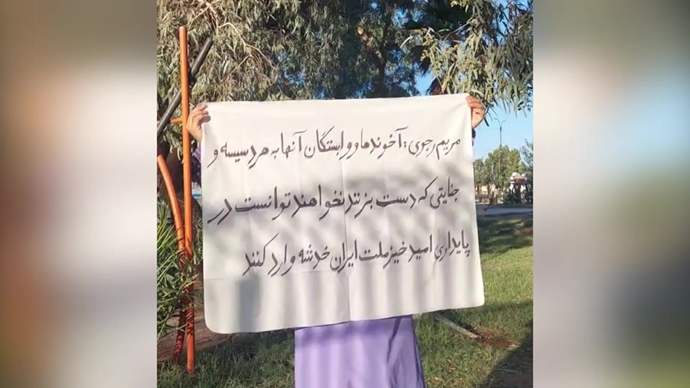 مریم رجوی: آخوندها و وابستگان آنها به هر دسیسه و
جنایتی که دست بزنند نخواهند توانست در
پایداری امید خیز ملت ایران خدشه وارد کنند